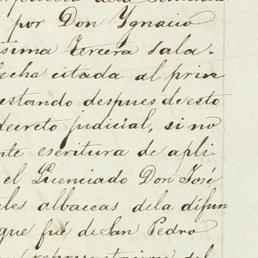 por Don Ygnacio
ísima Tercera Sala.
fecha citada al prin
estando despues de esto
decreto judicial, si no
nte escritura de apli
el Licenciado Don José
les albaceas dela difun
que fué de San Pedro